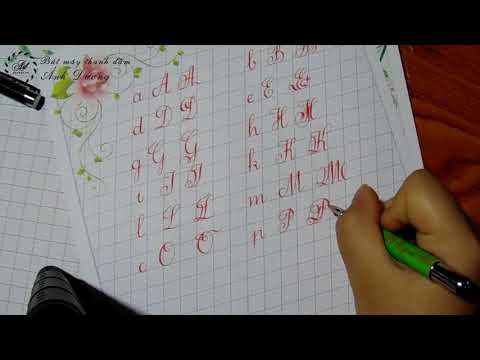 Bút máy thanh đậm
Ánh Dương
a A A b B B
d D D e E E
g G G h H H
i I I k K K
l L L m M M
o O O p P P